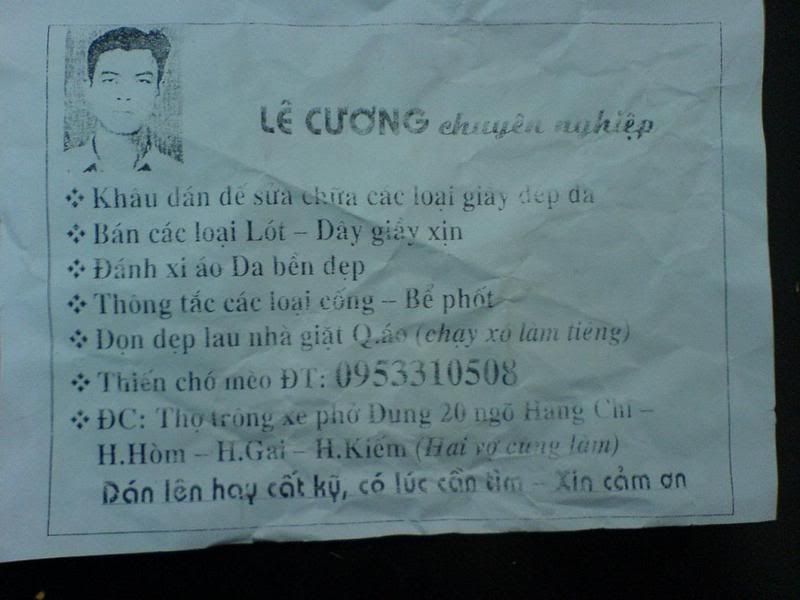 LÊ CƯƠNG chuyên nghiệp
❖ Khâu dán đế sửa chữa các loại giầy dép da
❖ Bán các loại Lót – Dây giầy xịn
❖ Đánh xi áo Da bền đẹp
❖ Thông tắc các loại cống – Bể phốt
❖ Dọn dẹp lau nhà giặt Q.áo (chạy xô làm tiếng)
❖ Thiến chó mèo ĐT: 0953310508
❖ ĐC: Thợ trông xe phở Dung 20 ngõ Hàng Chỉ –
H.Hòm – H.Gai – H.Kiếm (Hai vợ cùng làm)
Dán lên hay cất kỹ, có lúc cần tìm – Xin cảm ơn